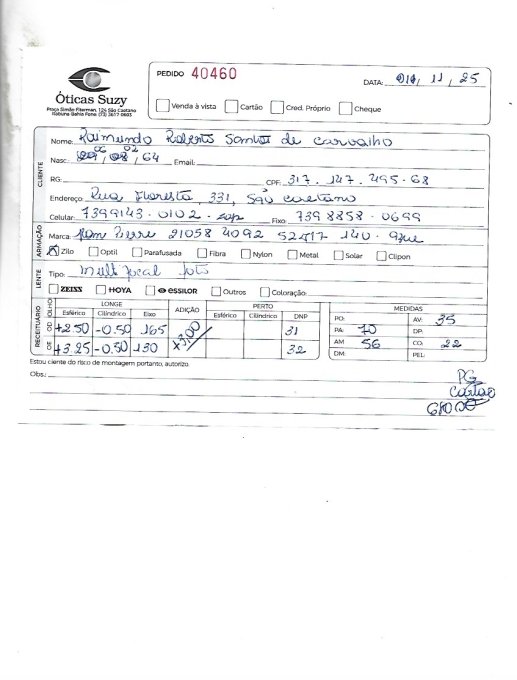 PEDIDO 40460
DATA: 04, 11, 25
Óticas Suzy
Praça Simão Fiterman, 124 São Caetano
Itabuna Bahia Fone: (73) 3617-0603
Venda à vista Cartão Cred. Próprio Cheque
CLIENTE
Nome: Raimundo Roberto Santos de Carvalho
06 02
Nasc.: 29, 08, 64 Email:
RG: CPF: 317.147.495-68
Endereço: Rua Floresta, 331, São Caetano
Celular: 7399143-0102 - zap Fixo: 7398858-0699
ARMAÇÃO
Marca: Jean Pierre 21058 4092 52□17 140
Zilo Optil Parafusada Fibra Nylon Metal Solar Clipon
LENTE
Tipo: multifocal foto
ZEISS HOYA essilor Outros Coloração:
RECEITUÁRIO
OLHO LONGE ADIÇÃO PERTO MEDIDAS
Esférico Cilíndrico Eixo Esférico Cilíndrico DNP
OD +2.50 -0.50 165 +3,00 31
OE +3.25 -0.50 130 32
PO: AV: 35
PA: 70 DP:
AM 56 CO: 22
DM: PEL:
Estou ciente do risco de montagem portanto, autorizo.
Obs.:
PG
Cartão